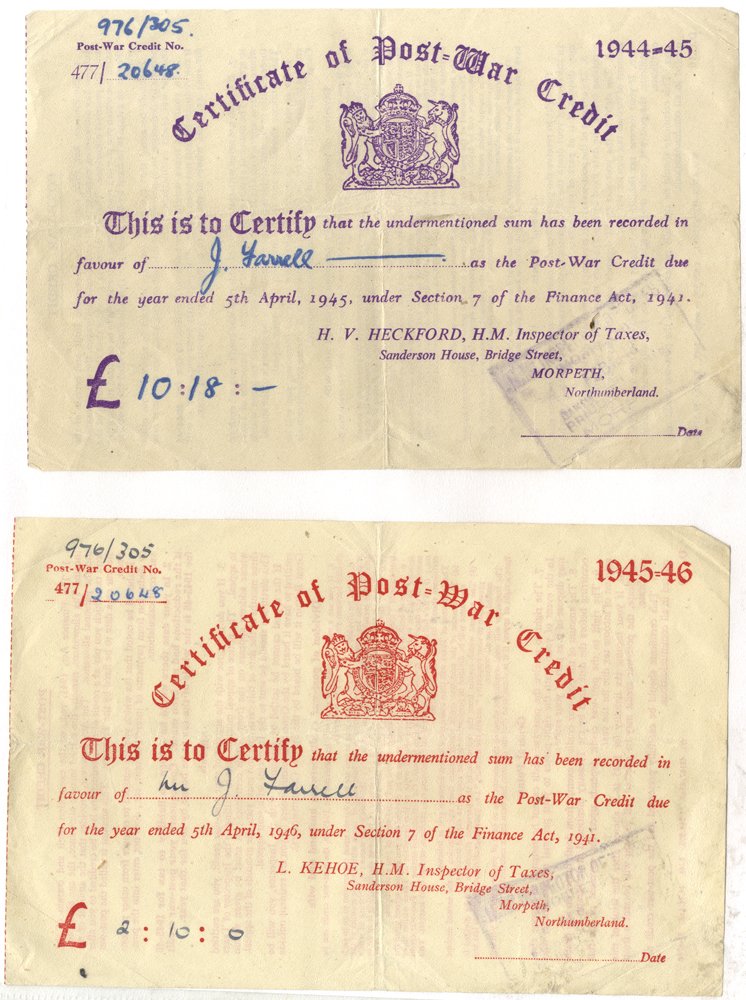 976/305.
Post-War Credit No.
477/ 20648.
Certificate of Post=War Credit
1944=45
This is to Certify that the undermentioned sum has been recorded in
favour of J. Farrell as the Post-War Credit due
for the year ended 5th April, 1945, under Section 7 of the Finance Act, 1941.
H. V. HECKFORD, H.M. Inspector of Taxes,
Sanderson House, Bridge Street,
MORPETH,
Northumberland.
£ 10:18:-
Date
976/305
Post-War Credit No.
477/20648
Certificate of Post=War Credit
1945=46
This is to Certify that the undermentioned sum has been recorded in
favour of Mr J Farrell as the Post-War Credit due
for the year ended 5th April, 1946, under Section 7 of the Finance Act, 1941.
L. KEHOE, H.M. Inspector of Taxes,
Sanderson House, Bridge Street,
Morpeth,
Northumberland.
£ 2:10:0
Date